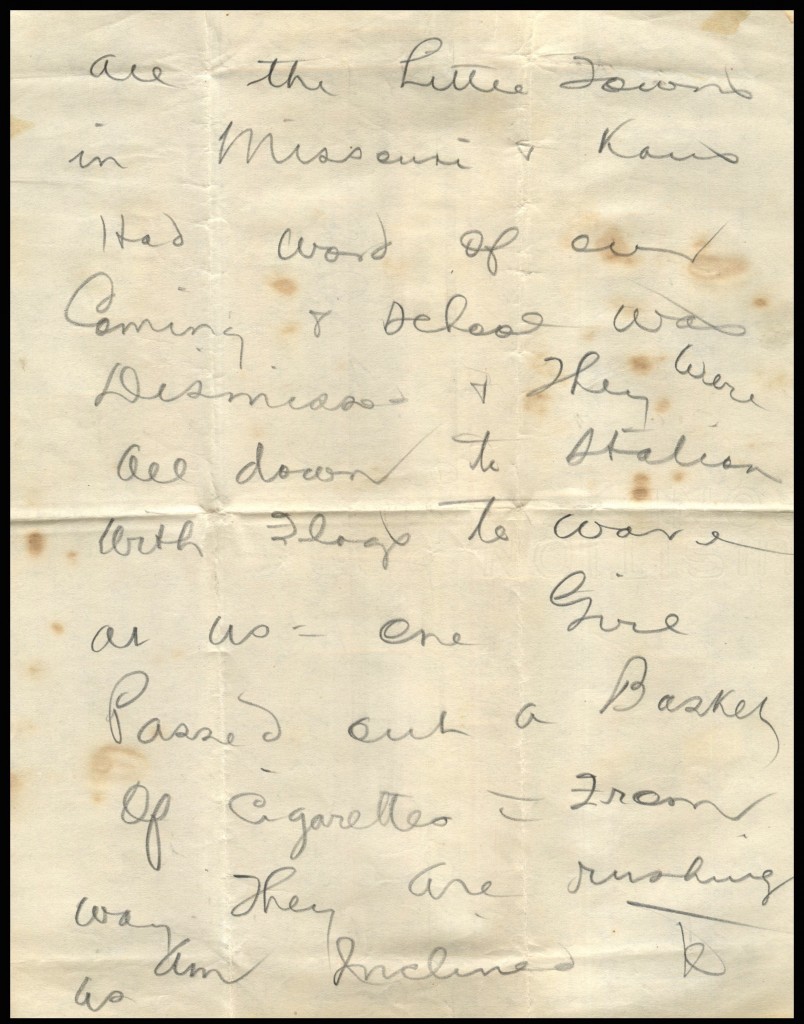 all the Little Towns
in Missouri & Kans
Had word of our
Coming & school was
Dismissed & They were
all down to station
With Flags to wave
at us - one Girl
Passed out a Basket
Of Cigarettes = From
way They are rushing
us am Inclined to